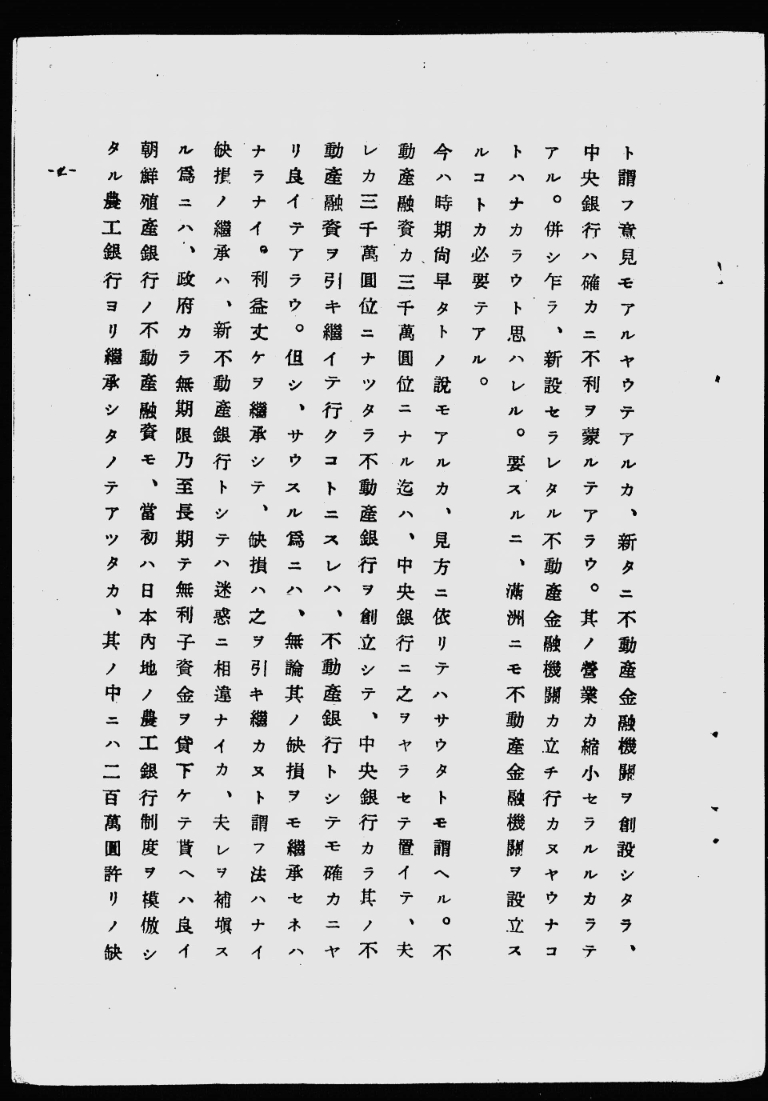 ト謂フ意見モアルヤウテアルカ、新タニ不動產金融機關ヲ創設シタラ、
中央銀行ハ確カニ不利ヲ蒙ルテアラウ。其ノ營業カ縮小セラルルカラテ
アル。併シ乍ラ、新設セラレタル不動產金融機關カ立チ行カヌヤウナコ
トハナカラウト思ハレル。要スルニ、滿洲ニモ不動產金融機關ヲ設立ス
ルコトカ必要テアル。
今ハ時期尙早タトノ說モアルカ、見方ニ依リテハサウタトモ謂ヘル。不
動產融資カ三千萬圓位ニナル迄ハ、中央銀行ニ之ヲヤラセテ置イテ、夫
レカ三千萬圓位ニナツタラ不動產銀行ヲ創立シテ、中央銀行カラ其ノ不
動產融資ヲ引キ繼イテ行クコトニスレハ、不動產銀行トシテモ確カニヤ
リ良イテアラウ。但シ、サウスル爲ニハ、無論其ノ缺損ヲモ繼承セネハ
ナラナイ。利益丈ケヲ繼承シテ、缺損ハ之ヲ引キ繼カヌト謂フ法ハナイ
缺損ノ繼承ハ、新不動產銀行トシテハ迷惑ニ相違ナイカ、夫レヲ補塡ス
ル爲ニハ、政府カラ無期限乃至長期テ無利子資金ヲ貸下ケテ貰ヘハ良イ
朝鮮殖產銀行ノ不動產融資モ、當初ハ日本內地ノ農工銀行制度ヲ模倣シ
タル農工銀行ヨリ繼承シタノテアツタカ、其ノ中ニハ二百萬圓許リノ缺